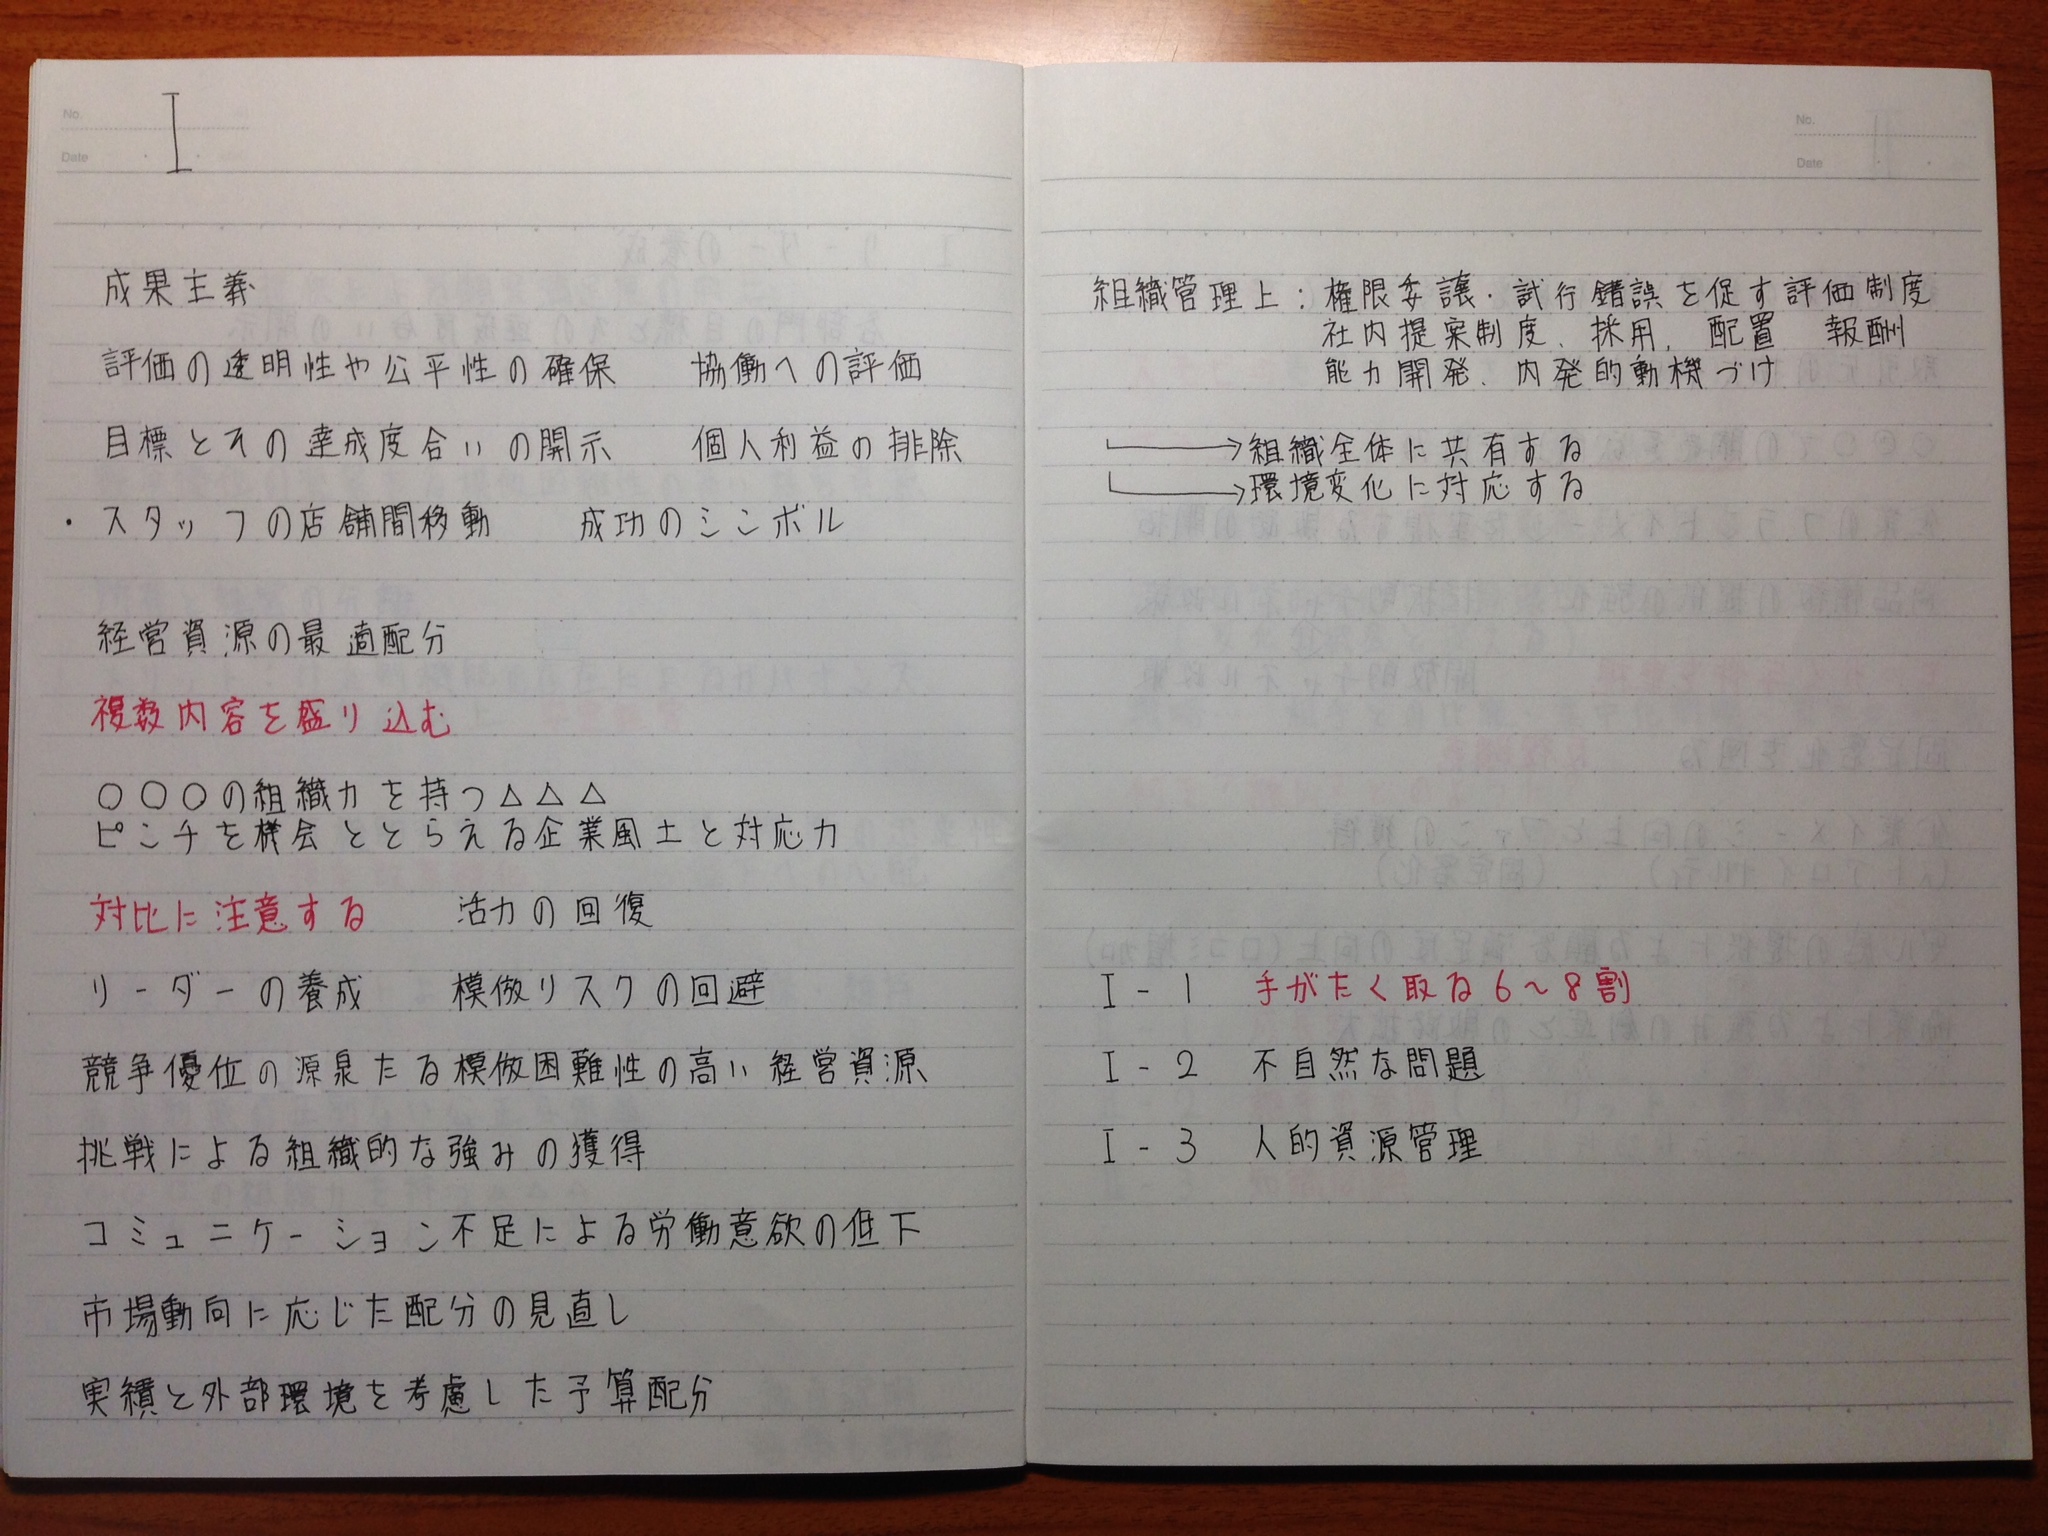 No.
Date
I
成果主義
評価の透明性や公平性の確保 協働への評価
目標とその達成度合いの開示 個人利益の排除
・スタッフの店舗間移動 成功のシンボル
経営資源の最適配分
複数内容を盛り込む
○○○の組織力を持つ△△△
ピンチを機会ととらえる企業風土と対応力
対比に注意する 活力の回復
リーダーの養成 模倣リスクの回避
競争優位の源泉たる模倣困難性の高い経営資源
挑戦による組織的な強みの獲得
コミュニケーション不足による労働意欲の低下
市場動向に応じた配分の見直し
実績と外部環境を考慮した予算配分
No.
Date
組織管理上:権限委譲・試行錯誤を促す評価制度
社内提案制度、採用、配置 報酬
能力開発、内発的動機づけ
→組織全体に共有する
→環境変化に対応する
I-1 手がたく取る6〜8割
I-2 不自然な問題
I-3 人的資源管理